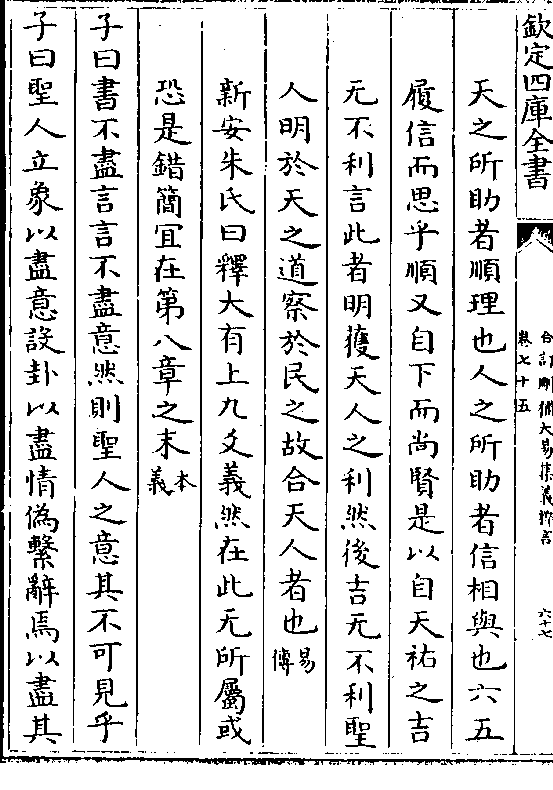 欽定四庫全書
合訂刪補大易集義粹言
卷七十五
六十七
天之所助者順理也人之所助者信相與也六五
履信而思乎順又自下而尚賢是以自天祐之吉
无不利言此者明獲天人之利然後吉无不利聖
人明於天之道察於民之故合天人者也易傳
新安朱氏曰釋大有上九爻義然在此无所屬或
恐是錯簡宜在第八章之末本義
子曰書不盡言言不盡意然則聖人之意其不可見乎
子曰聖人立象以盡意設卦以盡情偽繫辭焉以盡其